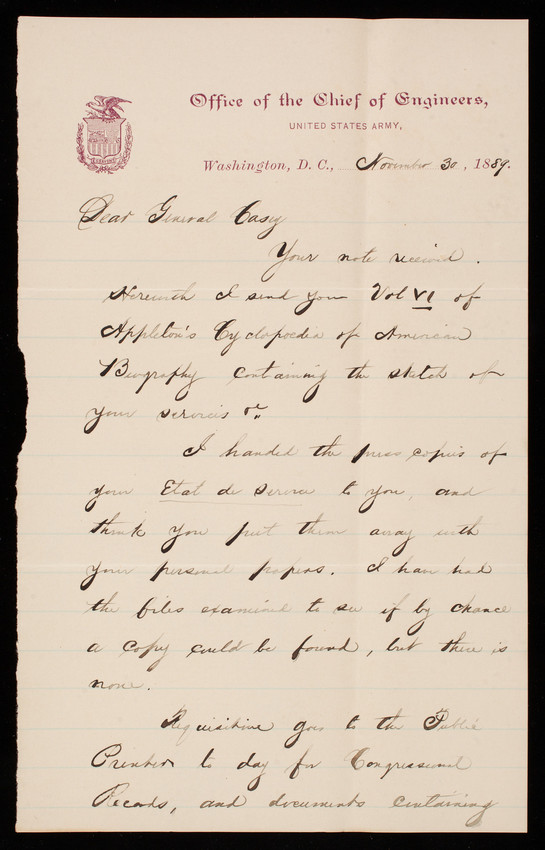 Office of the Chief of Engineers,
UNITED STATES ARMY,
Washington, D. C., November 30, 1889.
Dear General Casey
Your note received.
Herewith I send you Vol VI of
Appleton's Cyclopoedia of American
Biography containing the sketch of
your services &c.
I handed the press copies of
your Etat de Service to you, and
think you put them away with
your personal papers. I have had
the files examined to see if by chance
a copy could be found, but there is
none.
Requisition goes to the Public
Printer to day for Congressional
Records, and documents containing